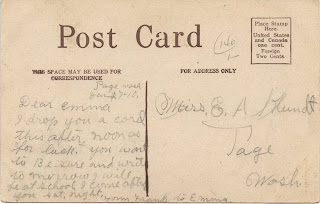 Post Card
Place Stamp
Here
United States
and Canada
one cent.
Foreign
Two Cents
THIS SPACE MAY BE USED FOR
CORRESPONDENCE
FOR ADDRESS ONLY
Dear Emma
I drop you a card
this after noon as
for luck. you want
to Be sure and write
to morrow I will
be at school I come after
you sat, night.
to Emma
Miss. E. A
Page
Wash